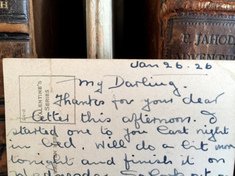 P. JAHODA
Jan 26. 26
My Darling.
VALENTINE'S
SERIES
Thanks for your dear
letter this afternoon. I
started one to you last night
in bed. Will do a bit more
tonight and finish it on
Wednesday.